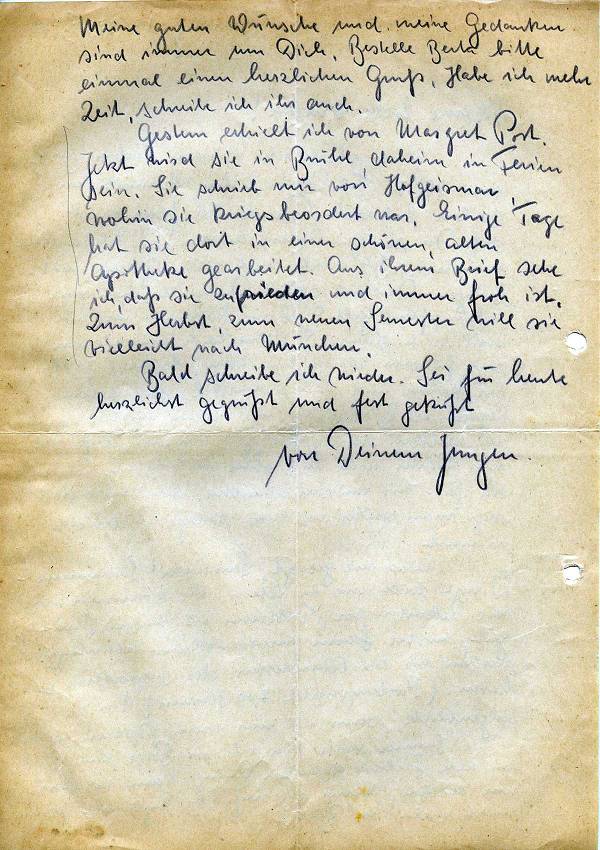 Meine guten Wünsche und meine Gedanken
sind immer um Dich. Bestelle Berta bitte
einmal einen herzlichen Gruß. Habe ich mehr
Zeit, schreibe ich ihr auch.
Gestern erhielt ich von Margret Post.
Jetzt wird sie in Brühl daheim in Ferien
sein. Sie schrieb mir von Hofgeismar,
wohin sie kriegsbeordert war. Einige Tage
hat sie dort in einer schönen, alten
Apotheke gearbeitet. Aus ihrem Brief sehe
ich, daß sie zufrieden und immer froh ist.
Zum Herbst, zum neuen Semester will sie
vielleicht nach München.
Bald schreibe ich wieder. Sei für heute
herzlichst gegrüßt und fest geküßt
von Deinem Jungen.